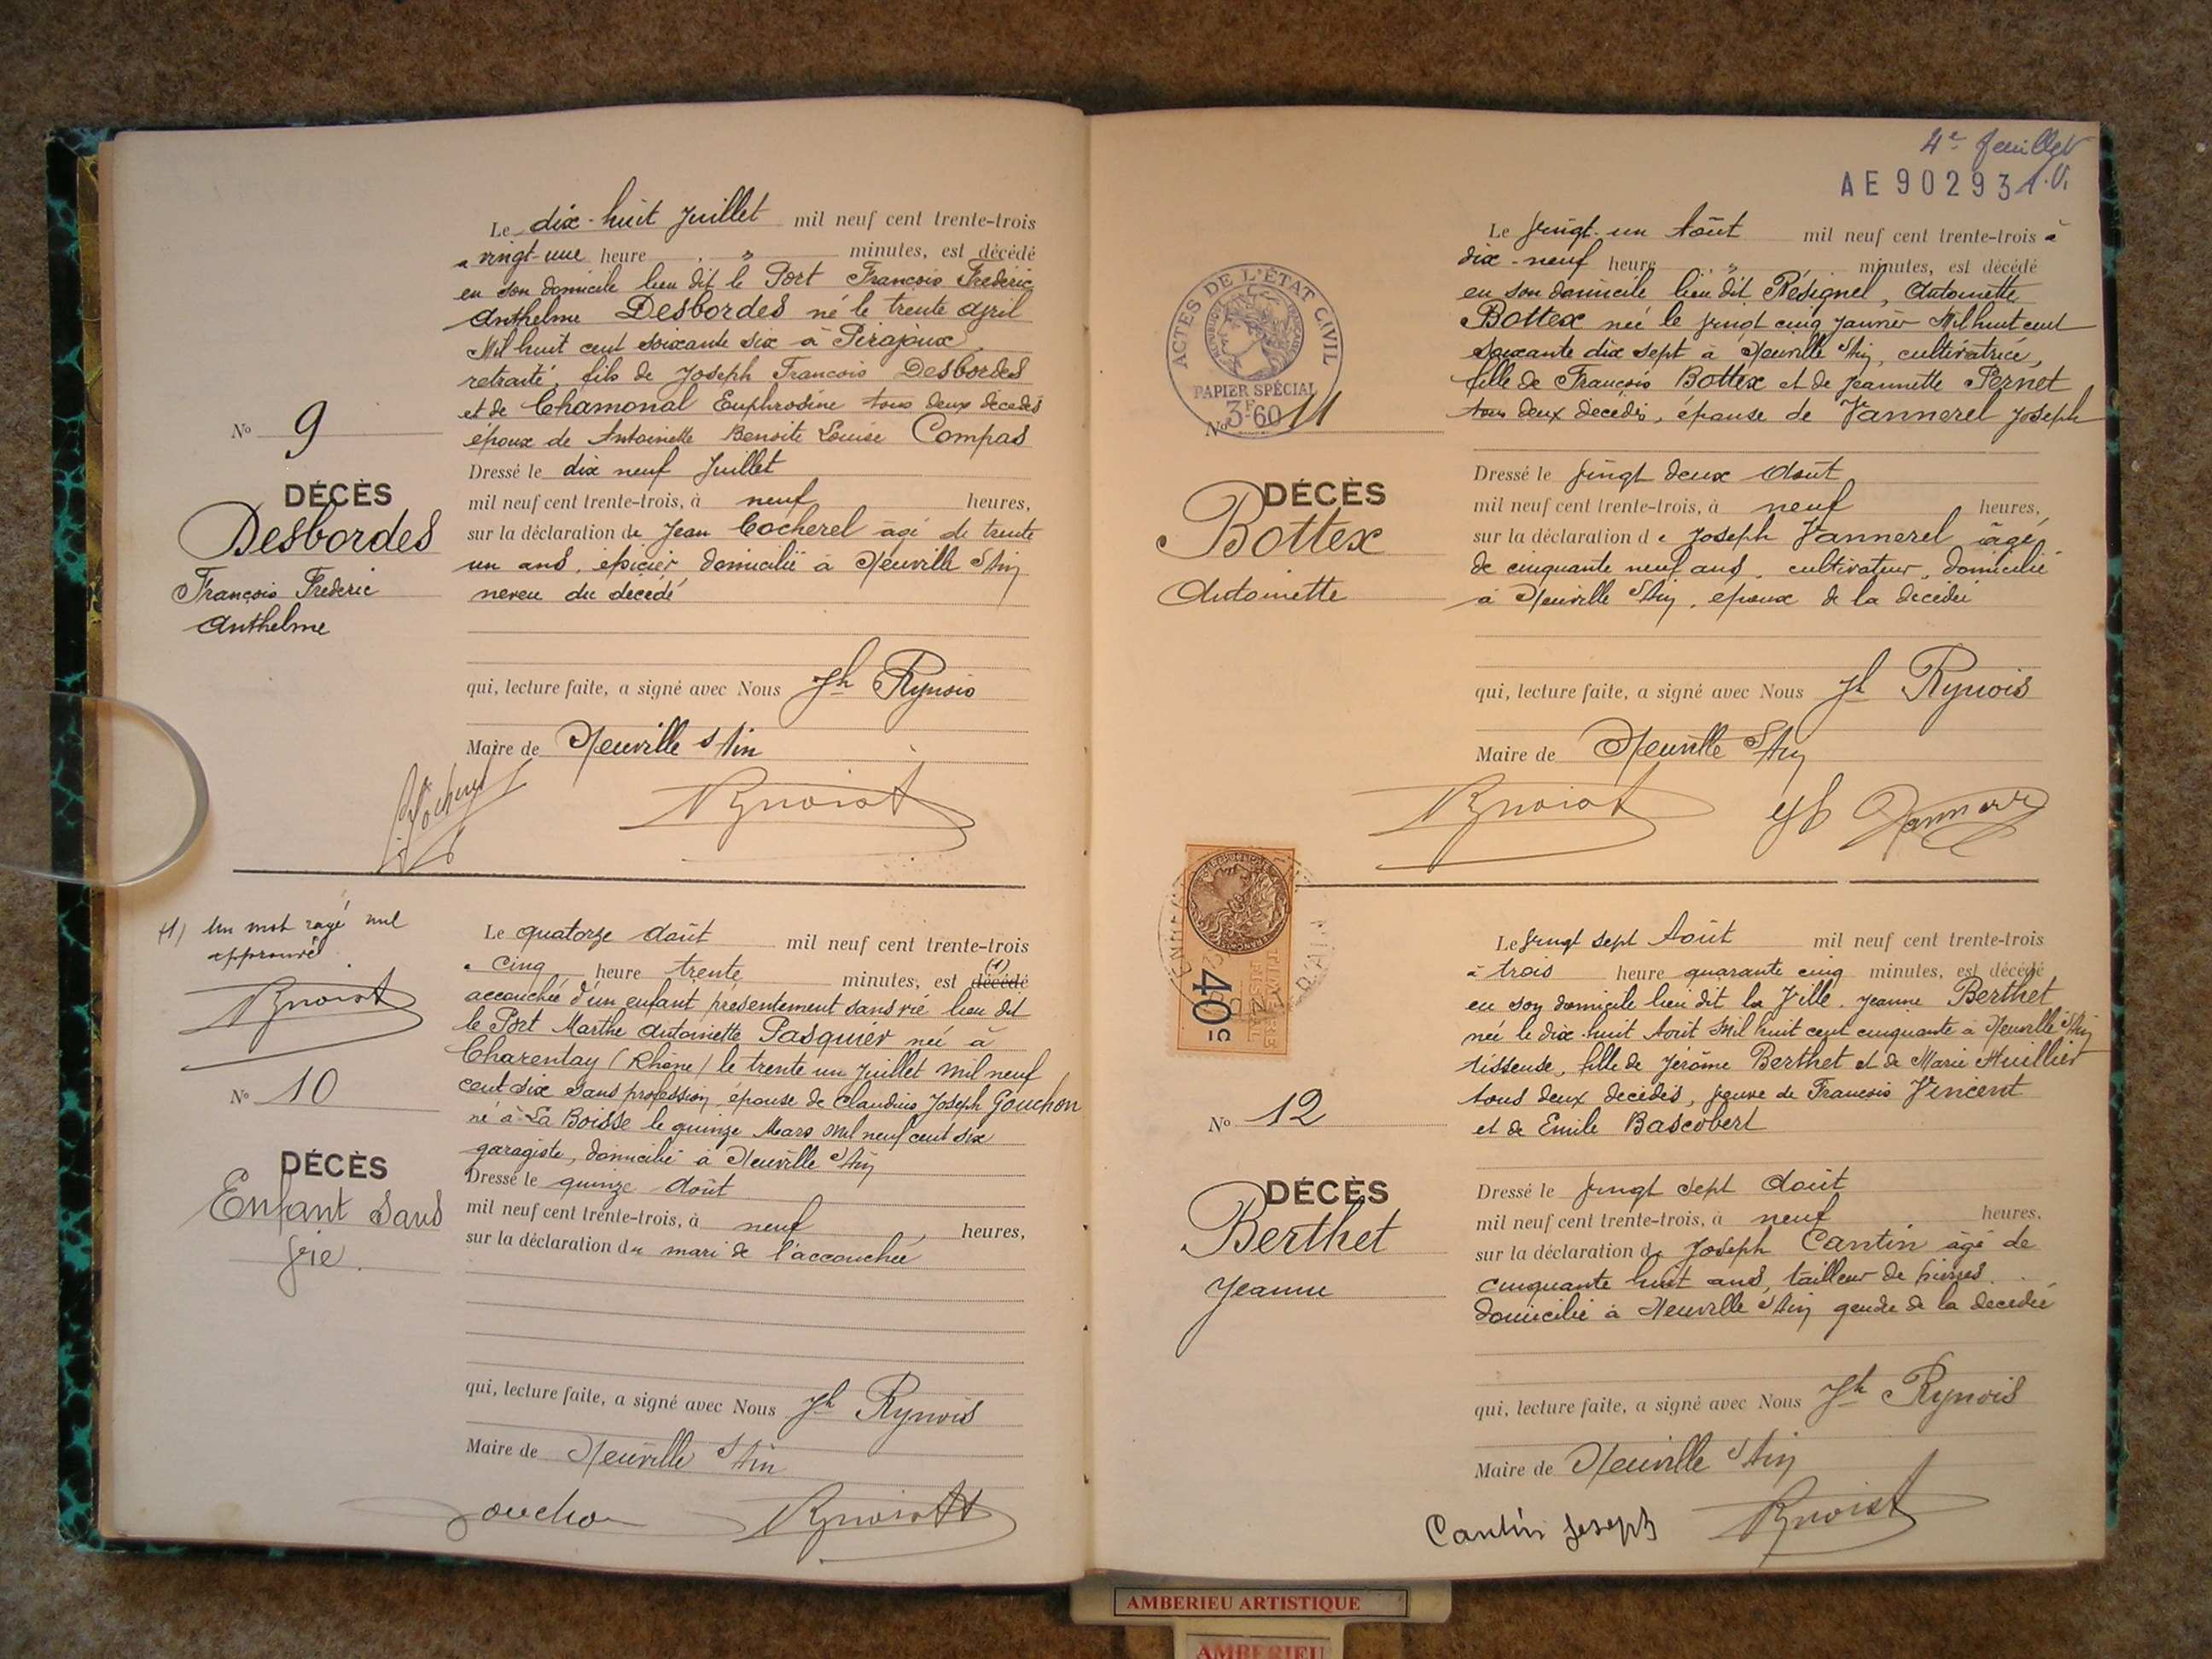 Le dix-huit Juillet mil neuf cent trente-trois
a vingt-une heure " minutes, est décédé
en son domicile lieu dit le Port François Frederic
Anthelme Desbordes né le trente Avril
Mil huit cent soixante six à Pirajoux
retraité, fils de Joseph François Desbordes
et de Chamonal Euphrosine tous deux décédés
époux de Antoinette Benoite Louise Compas
Nº 9
DÉCÈS
Desbordes
François Frederic
Anthelme
Dressé le dix neuf Juillet
mil neuf cent trente-trois, à neuf heures,
sur la déclaration de Jean Cocherel agé de trente
un ans, épicier domicilié à Neuville s/Ain
neveu du décédé
qui, lecture faite, a signé avec Nous Jh Rynois
Maire de Neuville s/Ain
(1) Un mot rayé nul
approuvé
Nº 10
DÉCÈS
Enfant sans
vie
Le quatorze Août mil neuf cent trente-trois
à cinq heure trente minutes, est décédé (1)
accouchée d'un enfant présentement sans vie lieu dit
le Port Marthe Antoinette Pasquier née à
Charentay (Rhône) le trente un Juillet mil neuf
cent six sans profession, épouse de Claudius Joseph Gouchon
né à La Boisse le quinze Mars Mil neuf cent six
garagiste, domicilié à Neuville s/Ain
Dressé le quinze Août
mil neuf cent trente-trois, à neuf heures,
sur la déclaration du mari de l'accouchée
qui, lecture faite, a signé avec Nous Jh Rynois
Maire de Neuville s/Ain
4e feuillet
AE 90293
ACTES DE L'ÉTAT CIVIL
PAPIER SPÉCIAL
3F60
Nº 11
DÉCÈS
Bottex
Antoinette
Le vingt-un Août mil neuf cent trente-trois à
dix-neuf heure " minutes, est décédé
en son domicile lieu dit Résignel, Antoinette
Bottex née le vingt cinq Janvier Mil huit cent
soixante dix sept à Neuville s/Ain, cultivatrice,
fille de François Bottex et de Jeannette Pernet
tous deux décédés, épouse de Vannerel Joseph
Dressé le vingt deux Août
mil neuf cent trente-trois, à neuf heures,
sur la déclaration de Joseph Vannerel âgé
de cinquante neuf ans, cultivateur, domicilié
à Neuville s/Ain, époux de la décédée
qui, lecture faite, a signé avec Nous Jh Rynois
Maire de Neuville s/Ain
40c
Nº 12
DÉCÈS
Berthet
Jeanne
Le vingt sept Août mil neuf cent trente-trois
à trois heure quarante cinq minutes, est décédé
en son domicile lieu dit la Ville. Jeanne Berthet
née le dix huit Août Mil huit cent cinquante à Neuville s/Ain
tisseuse, fille de Jérôme Berthet et de Marie Huillier
tous deux décédés, veuve de François Vincent
et de Emile Bascobert
Dressé le vingt sept Août
mil neuf cent trente-trois, à neuf heures.
sur la déclaration de Joseph Cantin âgé de
cinquante huit ans, tailleur de pierres
domicilié à Neuville s/Ain gendre de la décédée
qui, lecture faite, a signé avec Nous Jh Rynois
Maire de Neuville s/Ain
Cantin Joseph
AMBERIEU ARTISTIQUE
AMBERIEU